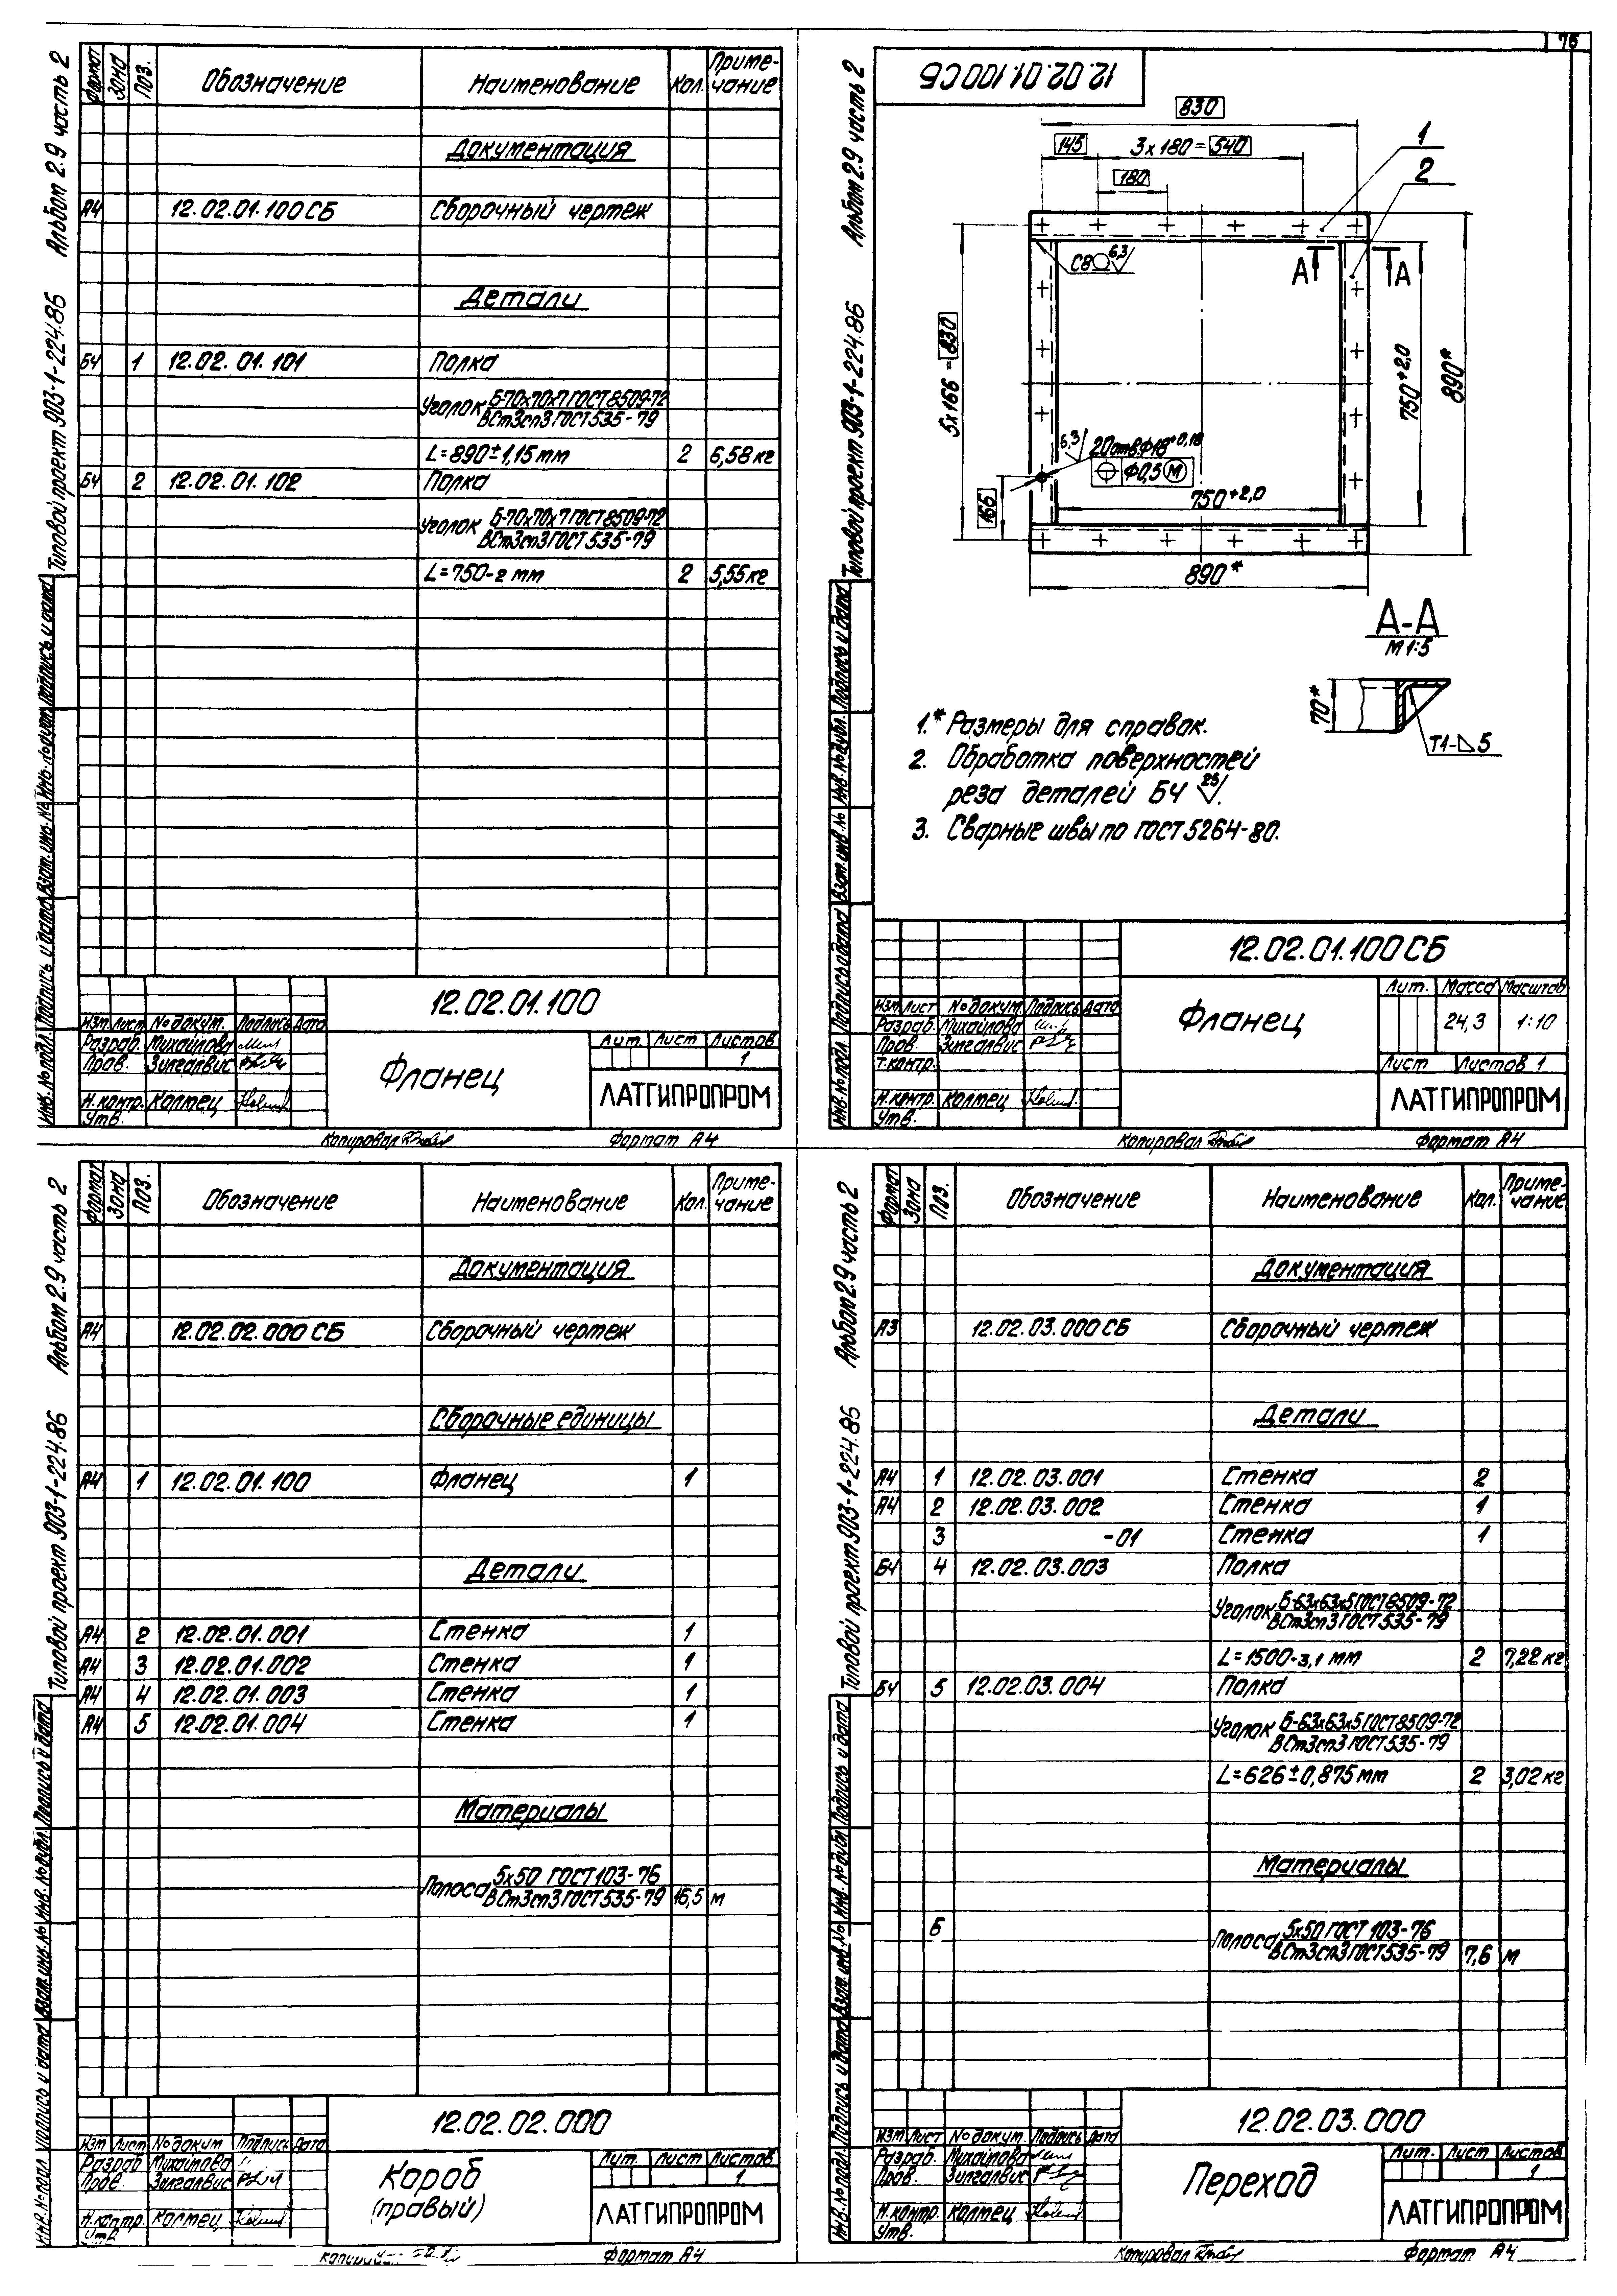 76
Альбом 2.9 часть 2
Типовой проект 903-1-224.86
Формат Зона Поз. Обозначение Наименование Кол. Приме-
чание
Документация
А4 12.02.01.100 СБ Сборочный чертеж
Детали
БЧ 1 12.02.01.101 Полка
Уголок Б-70х70х7 ГОСТ 8509-72
ВСт3сп3 ГОСТ 535-79
L=890±1,15 мм 2 6,58 кг
БЧ 2 12.02.01.102 Полка
Уголок Б-70х70х7 ГОСТ 8509-72
ВСт3сп3 ГОСТ 535-79
L=750-2 мм 2 5,55 кг
Инв. № подл. Подпись и дата Взам. инв. № Инв. № дубл. Подпись и дата
12.02.01.100
Изм Лист № докум. Подпись Дата
Разраб. Михайлова
Пров. Зилгалвис
Н. контр. Колтец
Утв.
Фланец
Лит. Лист Листов
1
ЛАТГИПРОПРОМ
Копировал Формат А4
Альбом 2.9 часть 2
Типовой проект 903-1-224.86
12.02.01.100 СБ
830
145 3х180=540
180
1
2
С8 6,3
А А
5х166=830
750+2,0
890*
6,3 20 отв. Ф18+0,18
Ф0,5 М
166
750+2,0
890*
А-А
М 1:5
70*
Т1-⊿5
1.* Размеры для справок.
2. Обработка поверхностей
реза деталей БЧ 25.
3. Сварные швы по ГОСТ 5264-80.
Инв. № подл. Подпись и дата Взам. инв. № Инв. № дубл. Подпись и дата
12.02.01.100 СБ
Изм Лист № докум. Подпись Дата
Разраб. Михайлова
Пров. Зилгалвис
Т. контр.
Н. контр. Колтец
Утв.
Фланец
Лит. Масса Масштаб
24,3 1:10
Лист Листов 1
ЛАТГИПРОПРОМ
Копировал Формат А4
Альбом 2.9 часть 2
Типовой проект 903-1-224.86
Формат Зона Поз. Обозначение Наименование Кол. Приме-
чание
Документация
А4 12.02.02.000 СБ Сборочный чертеж
Сборочные единицы
А4 1 12.02.01.100 Фланец 1
Детали
А4 2 12.02.01.001 Стенка 1
А4 3 12.02.01.002 Стенка 1
А4 4 12.02.01.003 Стенка 1
А4 5 12.02.01.004 Стенка 1
Материалы
Полоса 5х50 ГОСТ 103-76
ВСт3сп3 ГОСТ 535-79 16,5 м
Инв. № подл. Подпись и дата Взам. инв. № Инв. № дубл. Подпись и дата
12.02.02.000
Изм Лист № докум. Подпись Дата
Разраб. Михайлова
Пров. Зилгалвис
Н. контр. Колтец
Утв.
Короб
(правый)
Лит. Лист Листов
1
ЛАТГИПРОПРОМ
Копировал Формат А4
Альбом 2.9 часть 2
Типовой проект 903-1-224.86
Формат Зона Поз. Обозначение Наименование Кол. Приме-
чание
Документация
А3 12.02.03.000 СБ Сборочный чертеж
Детали
А4 1 12.02.03.001 Стенка 2
А4 2 12.02.03.002 Стенка 1
3 -01 Стенка 1
БЧ 4 12.02.03.003 Полка
Уголок Б-63х63х5 ГОСТ 8509-72
ВСт3сп3 ГОСТ 535-79
L=1500-3,1 мм 2 7,22 кг
БЧ 5 12.02.03.004 Полка
Уголок Б-63х63х5 ГОСТ 8509-72
ВСт3сп3 ГОСТ 535-79
L=626±0,875 мм 2 3,02 кг
Материалы
6 Полоса 5х50 ГОСТ 103-76
ВСт3сп3 ГОСТ 535-79 7,6 м
Инв. № подл. Подпись и дата Взам. инв. № Инв. № дубл. Подпись и дата
12.02.03.000
Изм Лист № докум. Подпись Дата
Разраб. Михайлова
Пров. Зилгалвис
Н. контр. Колтец
Утв.
Переход
Лит. Лист Листов
1
ЛАТГИПРОПРОМ
Копировал Формат А4